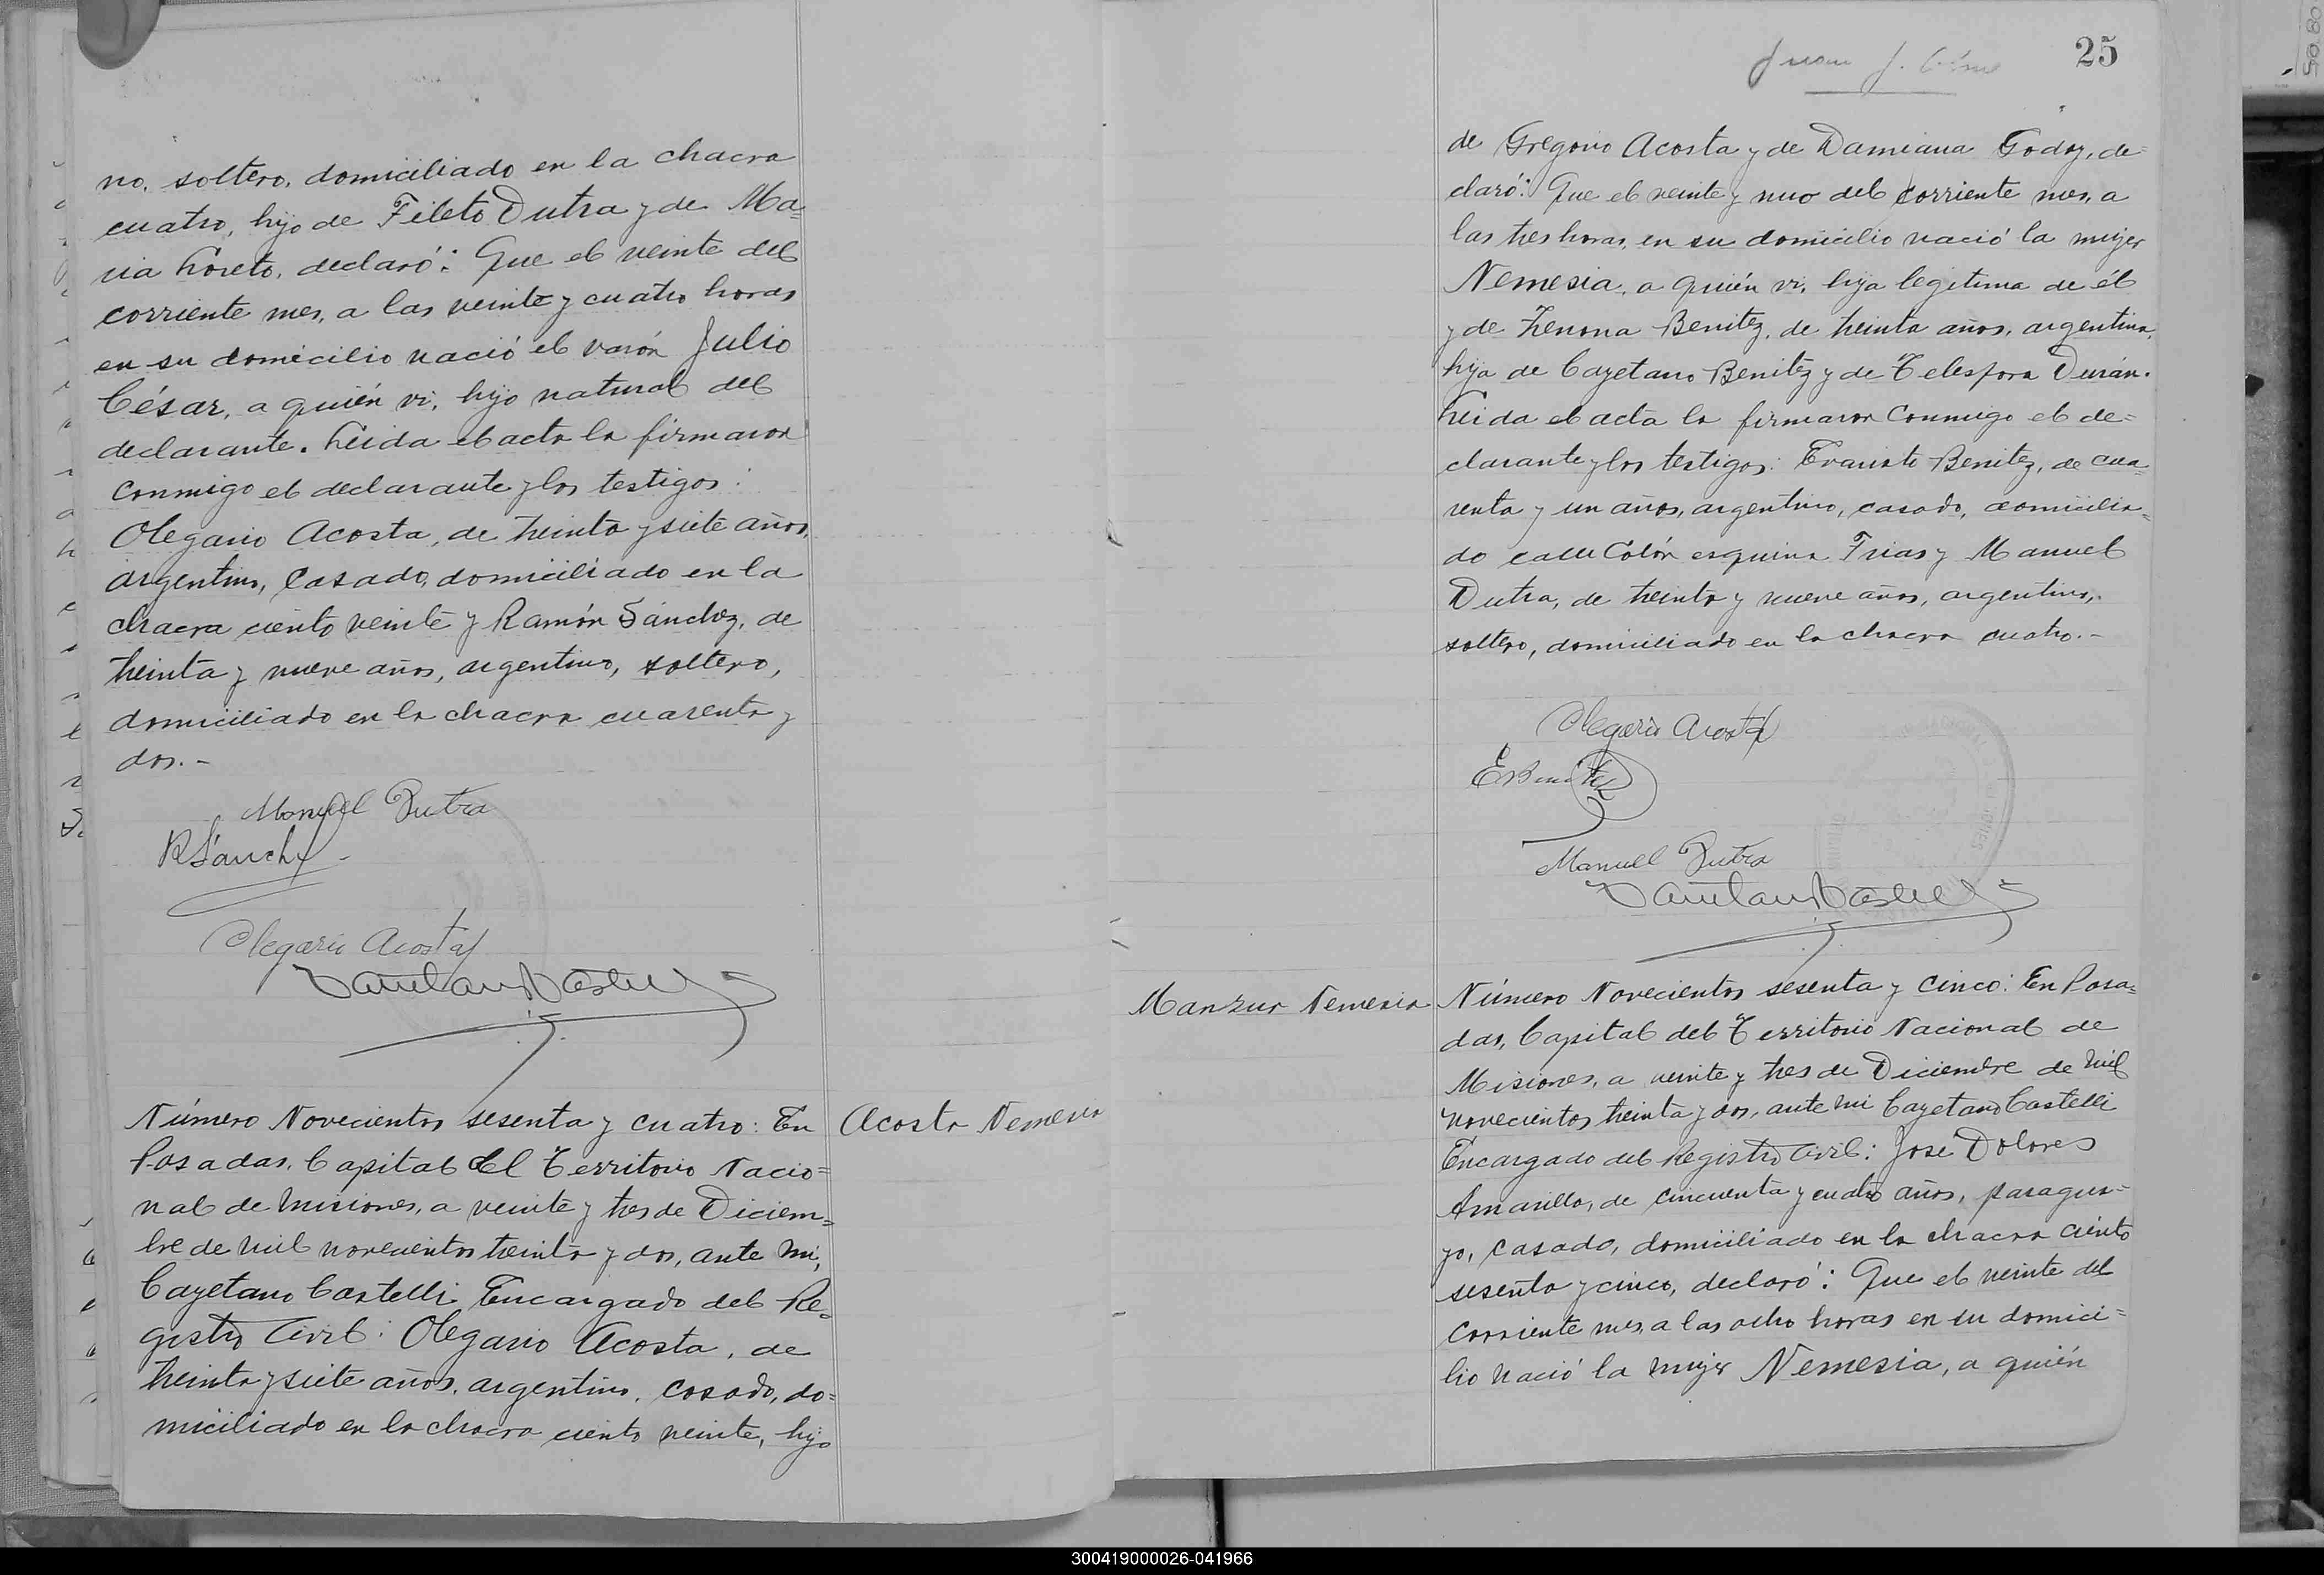 no, soltero, domiciliado en la chacra
cuatro, hijo de Fileto Dutra y de Ma=
ria Loreto, declaró: Que el veinte del
corriente mes, a las veinte y cuatro horas
en su domicilio nació el varón Julio
César, a quién vi, hijo natural del
declarante. Leida el acta la firmaron
conmigo el declarante y los testigos:
Olegario Acosta, de treinta y siete años,
argentino, casado, domiciliado en la
chacra ciento veinte y Ramón Sánchez, de
treinta y nueve años, argentino, soltero,
domiciliado en la chacra cuarenta y
dos.-
Manuel Dutra
R Sanchz
Olegario Acosta
Número Novecientos sesenta y cuatro: En
Posadas, Capital del Territorio Nacio=
nal de Misiones, a veinte y tres de Diciem=
bre de mil novecientos treinta y dos, ante mi,
Cayetano Castelli Encargado del Re=
gistro Civil: Olegario Acosta, de
treinta y siete años, argentino, casado, do=
miciliado en la chacra ciento veinte, hijo
Acosta Nemesia
25
Juan J.
de Gregorio Acosta y de Damiana Godoy, de=
claró: Que el veinte y uno del corriente mes, a
las tres horas, en su domicilio nació la mujer
Nemesia, a quién vi, hija legitima de él
y de Zenona Benitez, de treinta años, argentina,
hija de Cayetano Benitez y de Telespora Durán.
Leida el acta la firmaron conmigo el de=
clarante y los testigos: Evaristo Benitez, de cua=
renta y un años, argentino, casado, domicilia=
do calle Colón esquina Frias y Manuel
Dutra, de treinta y nueve años, argentino,
soltero, domiciliado en la chacra cuatro.-
Olegario Acosta
E Benitez
Manuel Dutra
Manzur Nemesia
Número Novecientos sesenta y cinco: En Posa=
das, Capital del Territorio Nacional de
Misiones, a veinte y tres de Diciembre de mil
novecientos treinta y dos, ante mi Cayetano Castelli
Encargado del Registro Civil: José Dolores
Amarilla, de cincuenta y cuatro años, paragua=
yo, casado, domiciliado en la chacra ciento
sesenta y cinco, declaró: Que el veinte del
corriente mes, a las ocho horas en su domici=
lio nació la mujer Nemesia, a quién
300419000026-041966